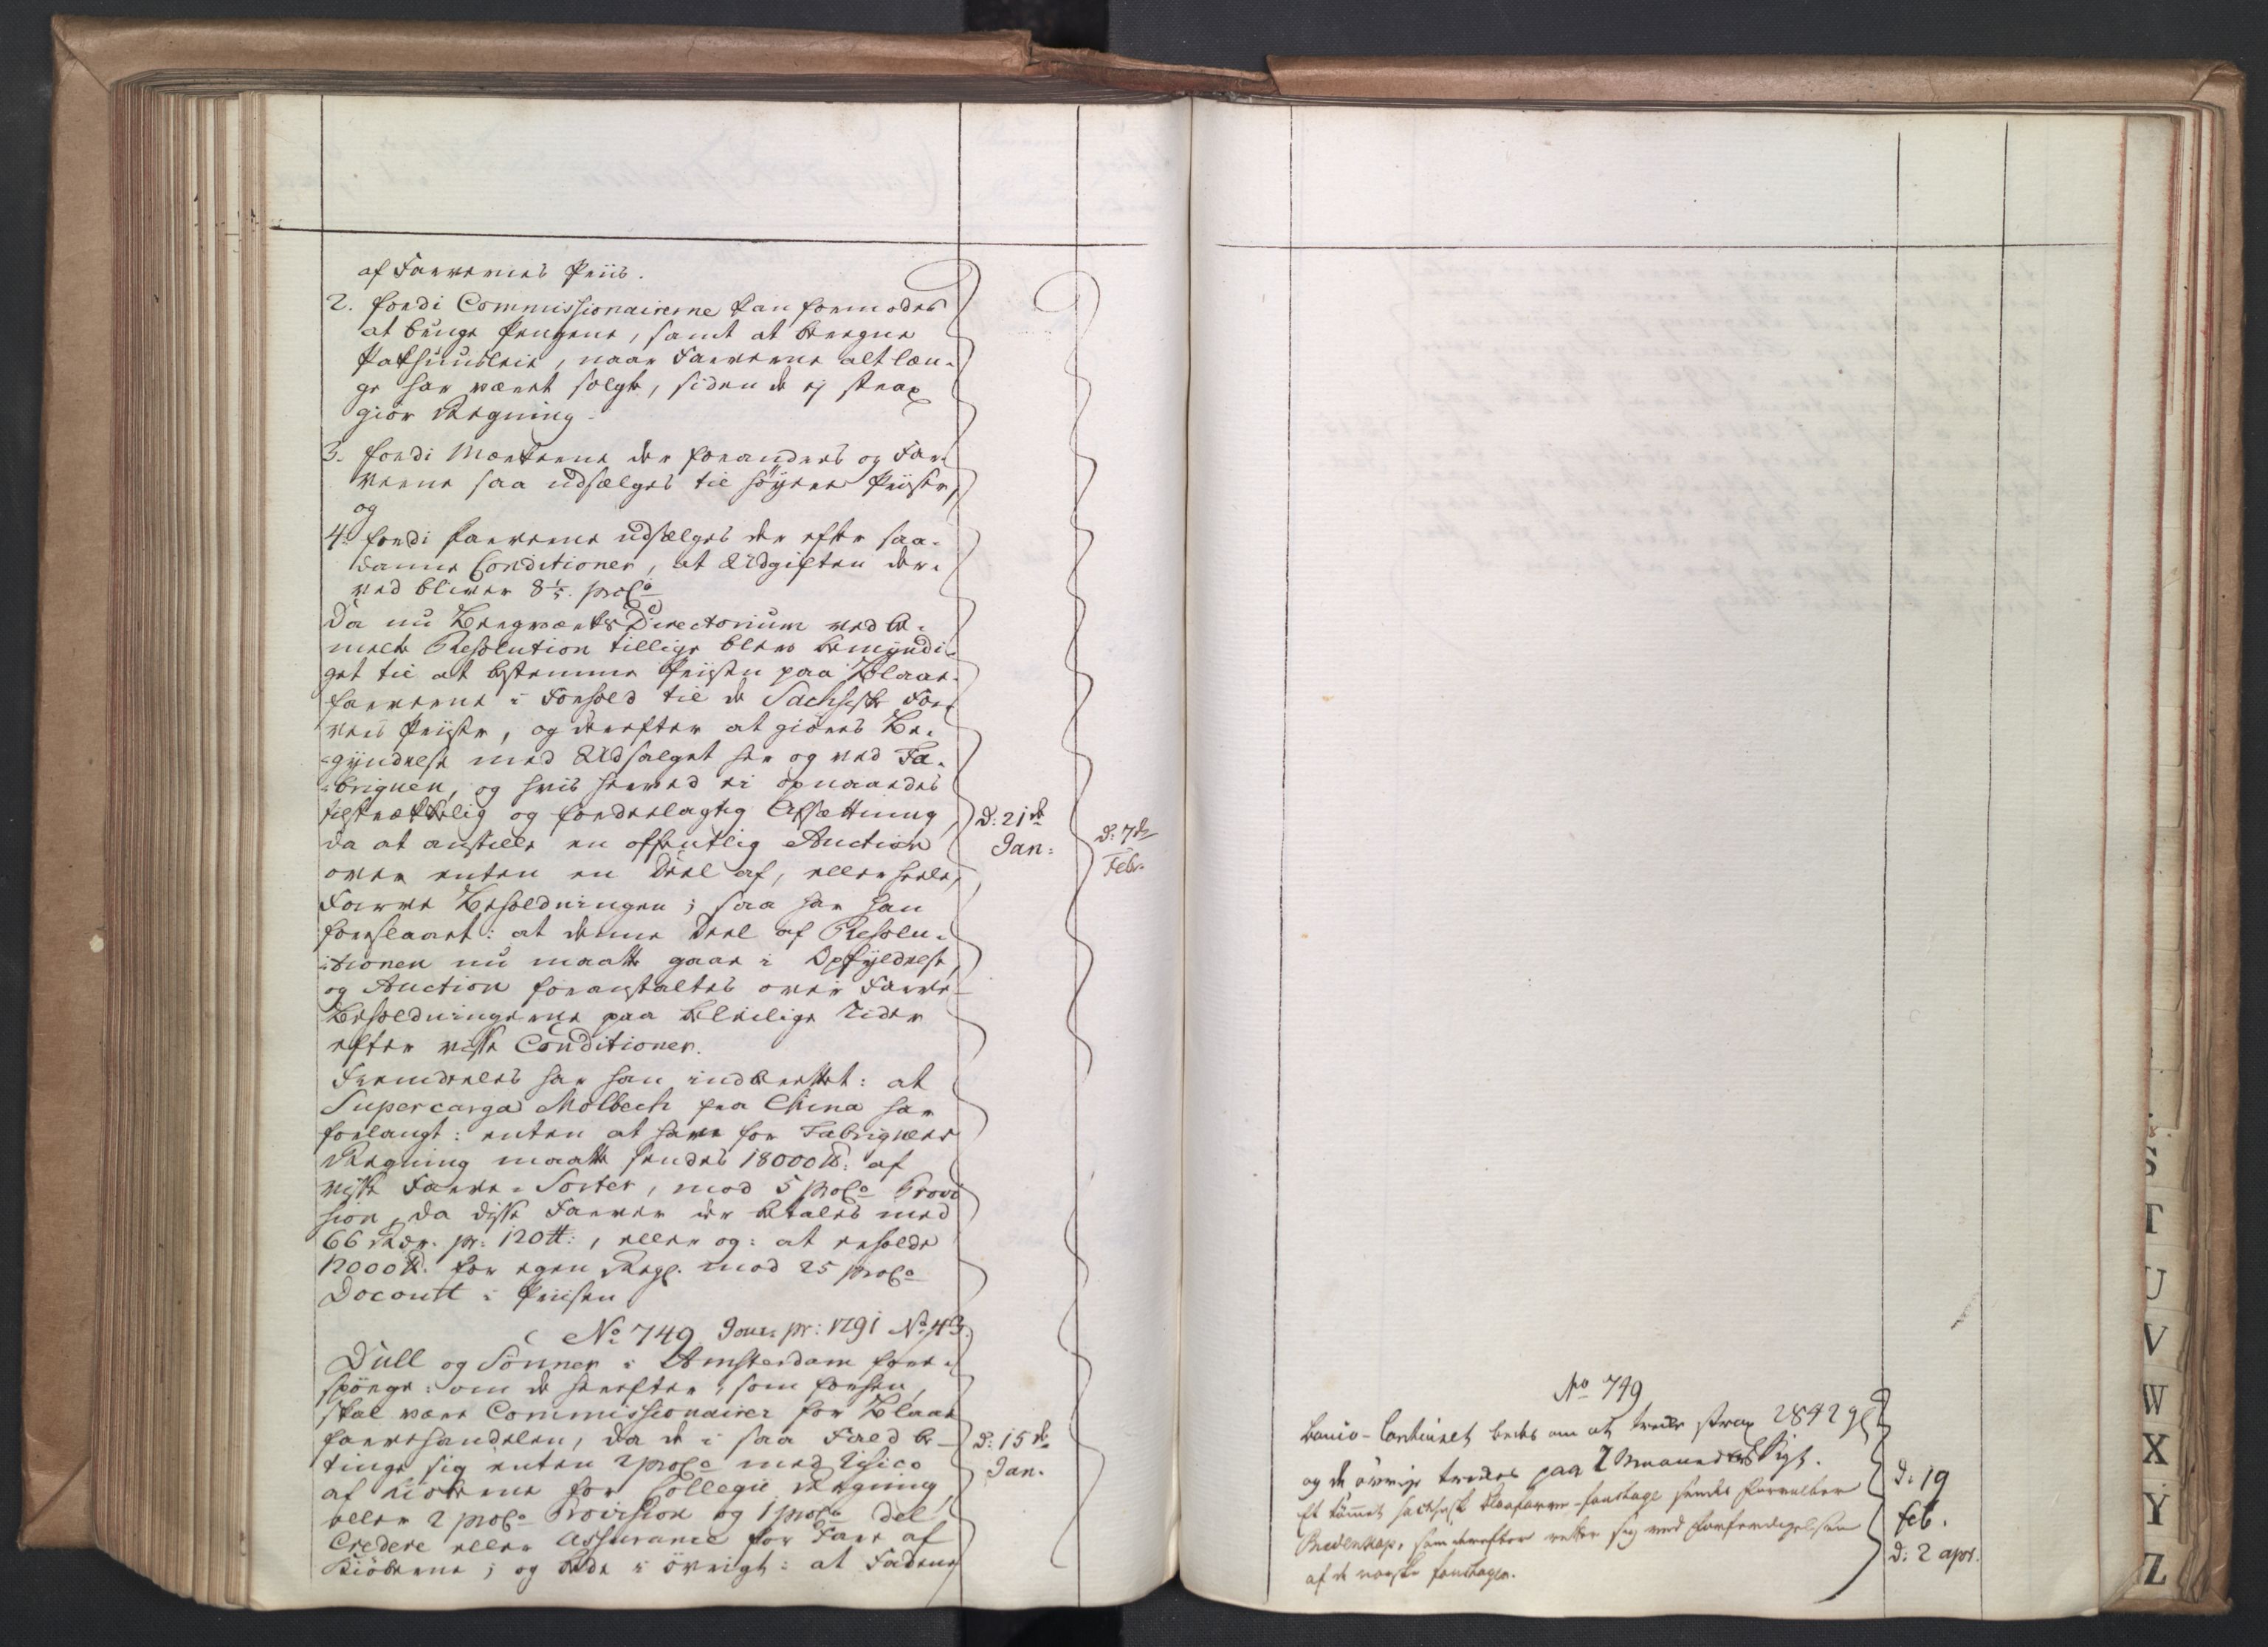 af Farvernes Priis.
2. fordi Commissionairerne kan formodes
at bruge Pengene, samt at beregne
Pakhuusleie, naar Farverne alt læn-
ge har været solgte, siden de ej strax
giör Regning.
3. fordi Mærkerne der forandres og Far-
verne saa udsælges til höyere Priiser,
og
4. fordi Farverne udsælges der efter saa-
danne Conditioner, at Udgiften der-
ved bliver 8 1/5. proCo
Da nu BergværksDirectorium ved be-
meldte Resolution tillige blev bemyndi-
get til at bestemme Priisen paa Blaae-
farverne i Forhold til de Sachsiske Far-
vers Priiser, og derefter at giöres Be-
gyndelse med Udsalget her og ved Fa-
briquen, og hvis herved ei opnaaedes
tilstrækkelig og fordeelagtig Afsættning,
da at anstille en offentlig Auction
over enten en Deel af, eller heele,
Farve Beholdningen; saa har han
foreslaaet: at denne Deel af Resolu-
tionen nu maatte gaae i Opfyldelse,
og Auction foranstaltes over Farve-
Beholdningerne paa beleilige Tider
efter visse Conditioner.
Fremdeles har han indberettet: at
Supercarga Molbech fra China har
forlangt: enten at have for Fabriqvens
Regning maatte sendes 18000 ℔: af
visse Farve-Sorter, mod 5 proCo Provi
sion, da disse Farver der betales med
66 Rdr. pr: 120 ℔:, eller og: at erholde
12000 ℔. for egen Regg. mod 25 proCo
Docourt i Priisen
No 749 Jour. pr: 1791 No 43.
Düll og Sönner i Amsterdam fore-
spörge: om de herefter, som forhen,
skal være Commissionairer for Blaae
farvehandelen, da de i saa Fald be-
tinge sig enten 2 proCo med Risico
af Kiöberne for Collegii Regning
eller 2 proCo Provision og 1 proCo Del
Credere eller Assurance for Fare af
Kiöberne; og bede i övrigt: at Fadene
D: 21de
Jan:
d: 7de
Febr.
D: 15de
Jan.
No 749
Banco-Contoiret bedes om at trække strax 2842 gl
og de övrige trækkes paa 2 Maaneders Sigt.
Et tömmet sachsisk Blaafarve-fustage sendes Forvalter
Bredenkop, som derefter retter sig ved Forfærdigelsen
af de norske fustager.
D: 19
feb.
D: 2 apr.
S
T
U
V
W
X
Y
Z